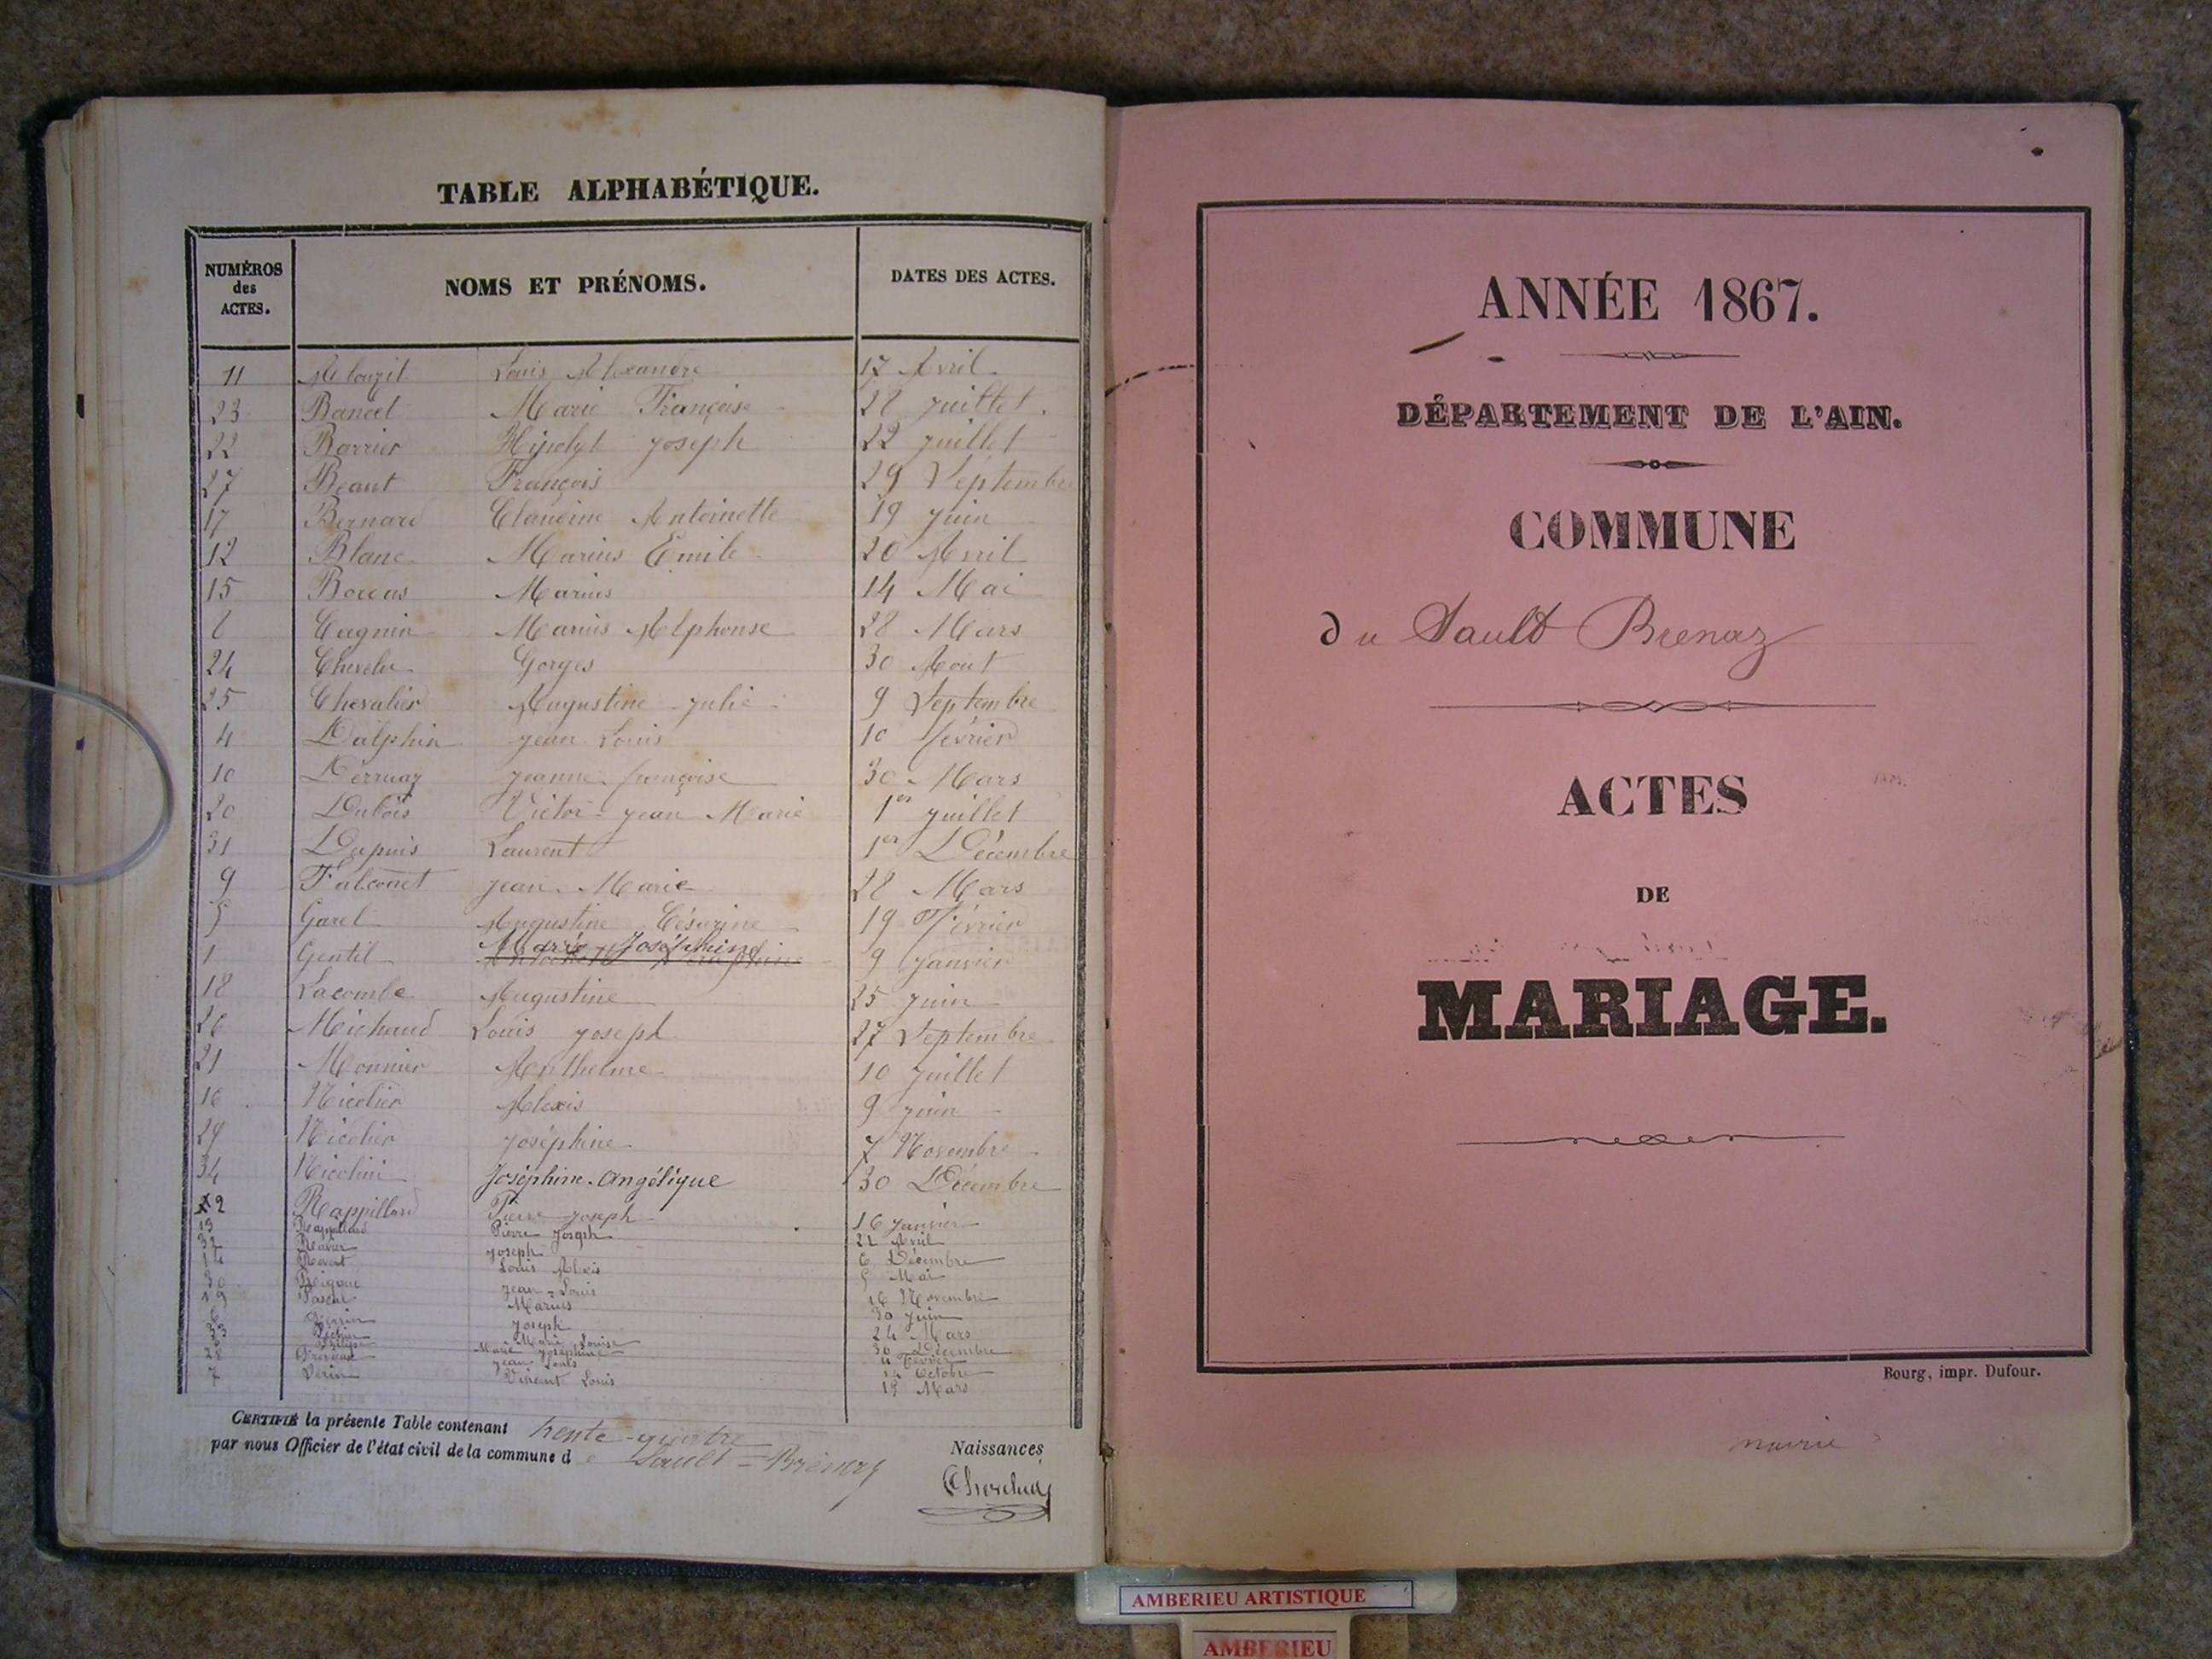 TABLE ALPHABÉTIQUE.
NUMÉROS des ACTES. NOMS ET PRÉNOMS. DATES DES ACTES.
11 Louis Alexandre 17 Avril
23 Bancet Marie Françoise 28 juillet
22 Barrier Hipolyt joseph 22 juillet
27 Beaut François 29 Septembre
17 Bernard Claudine Antoinette 19 juin
12 Blanc Marius Emile 20 Avril
15 Marius 14 Mai
8 Cagnin Marius Alphonse 28 Mars
24 Chevelu Gorges 30 Aout
25 Chevalier Augustine julie 9 Septembre
4 Dalphin jean Louis 10 février
10 Derruaz jeanne françoise 30 Mars
20 Dubois Victor jean Marie 1er juillet
31 Dupuis Laurent 1er Décembre
9 Falconet jean Marie 28 Mars
5 Garel Augustine Césarine 19 Février
1 Gentil Marie Joséphine 9 janvier
18 Lacombe Augustine 25 juin
26 Michaud Louis joseph 27 Septembre
21 Monnier Anthelme 10 juillet
16 Nicolier Alexis 9 juin
29 Nicolier joséphine 7 Novembre
34 Nicolini Joséphine Angélique 30 Décembre
2 Rappillard Pierre joseph 16 janvier
13 Rappillard Pierre Joseph 21 Avril
32 Ravier joseph 6 Décembre
14 Louis Alexis 5 Mai
30 jean Louis 16 Novembre
19 Pascal Marius 30 juin
6 Perrin Joseph 24 Mars
33 Marie Louise 30 Décembre
Marie joséphine Février
28 jean Louis 14 Octobre
7 Vincent Louis 19 Mars
CERTIFIÉ la présente Table contenant trente-quatre Naissances
par nous Officier de l'état civil de la commune de Sault-Brénaz
ANNÉE 1867.
DÉPARTEMENT DE L'AIN.
COMMUNE
du Sault Brenaz
ACTES
DE
MARIAGE.
Bourg, impr. Dufour.
mairie
AMBERIEU ARTISTIQUE
AMBERIEU